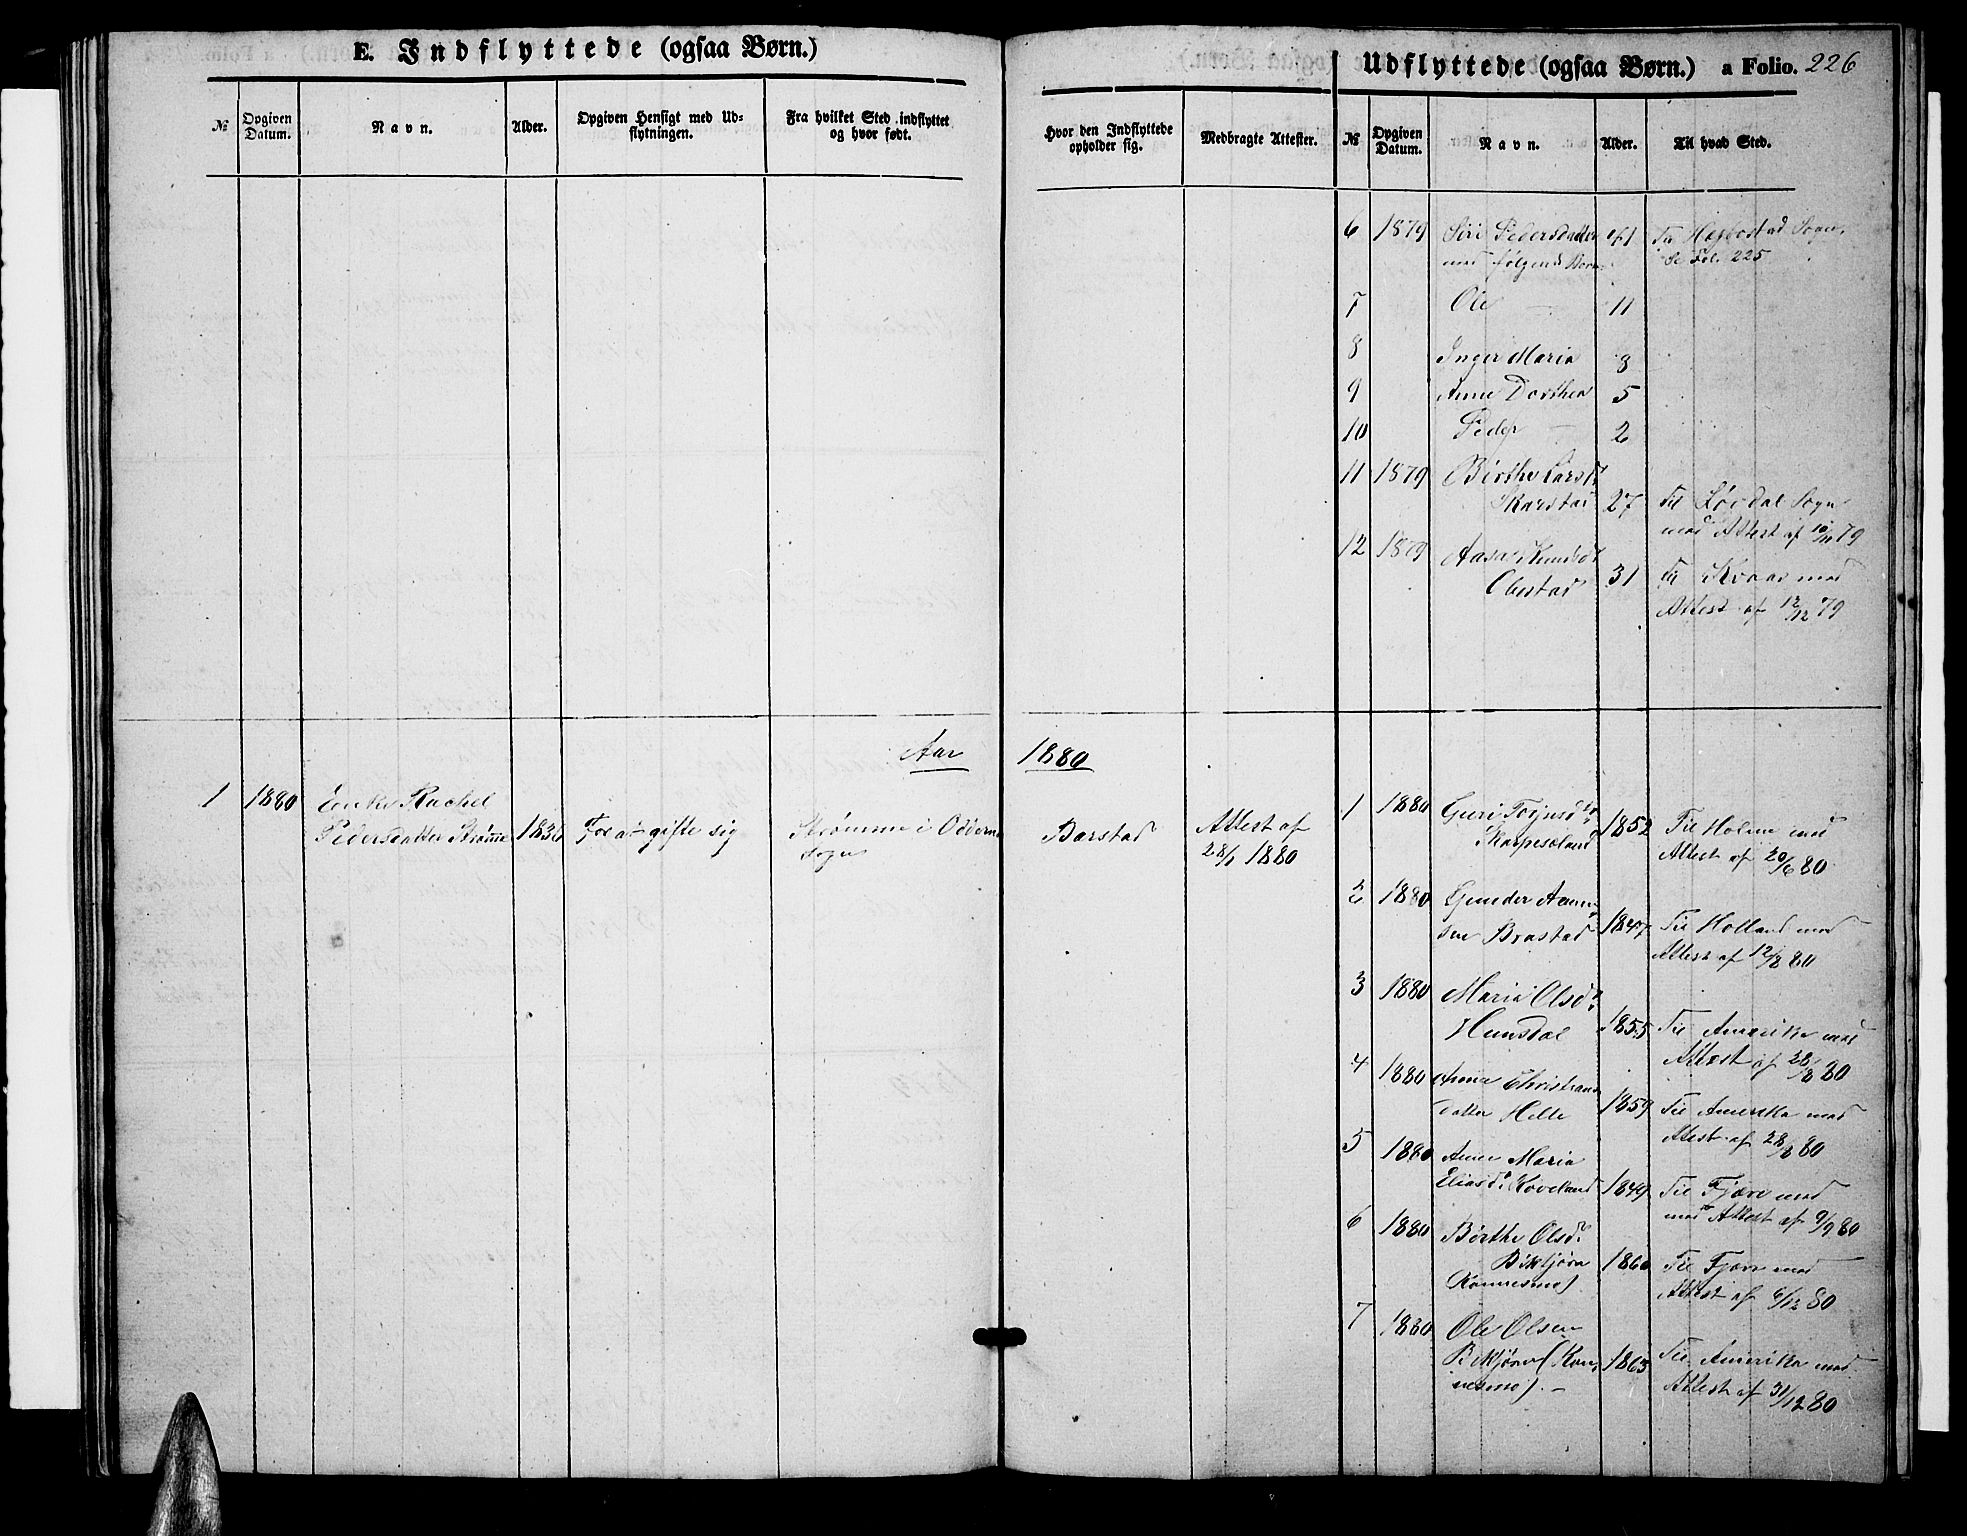 E. Indflyttede (ogsaa Børn.)
№
Opgiven Datum.
Navn.
Alder.
Opgiven Hensigt med Udflytningen.
Fra hvilket Sted indflyttet og hvor født.
Hvor den Indflyttede opholder sig.
Medbragte Attester.
Udflyttede (ogsaa Børn.) a Folio. 226
№
Opgiven Datum.
Navn.
Alder.
Til hvad Sted.
6 1879 Siri Pedersdatter 41 Til Hægbostad Sogn,
med følgende Børn: Se Fol. 225
7 Ole — 11
8 Inger Maria 8
9 Anne Dorthea 5
10 Peder — 2
11 1879 Birthe Larsd.
Skarstad 27 Til Lørdal Sogn
med Attest af 10/11 79
12 1879 Aasa Knudsd.
Obestad 31 Til Kvaas med
Attest af 12/12 79
Aar 1880
1 1880 Rachel
Pedersdatter Strømme 1836 For at gifte sig Strømme i Oddernes
Sogn
Barstad Attest af
28/1 1880
1 1880 Guri Torjusd.
Skarpesland 1852 Til Holme med
Attest af 20/6 80
2 1880 Gunder Aanen
sen Brastad 1847 Til Holland med
Attest af 12/8 80
3 1880 Maria Olsd.
Hunsdal 1855 Til Amerika med
Attest af 28/8 80
4 1880 Anna Christians
datter Helle 1859 Til Amerika med
Attest af 28/8 80
5 1880 Anne Maria
Eliasd. Koveland 1849 Til Fjære med
med Attest af 9/9 80
6 1880 Børthe Olsd.
Birktjørn 1860 Til Fjære med
Konnesmo) Attest af 6/12 80
7 1880 Ole Olsen
Birktjørn (Kon 1863 Til Amerika med
nesmo). — Attest af 31/12 80